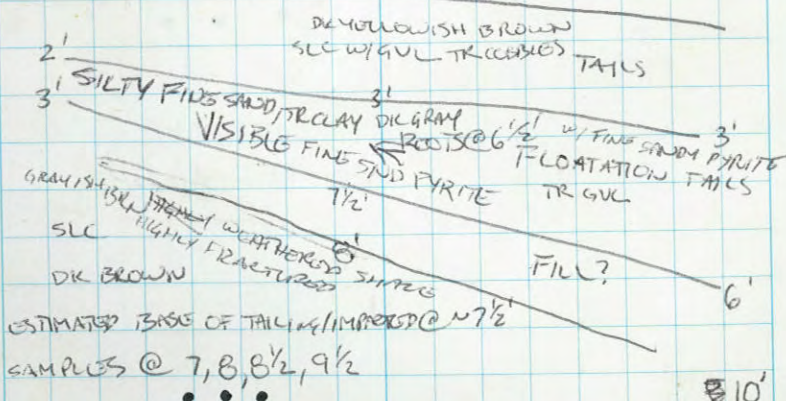 DK YELLOWISH BROWN
SLC W/ GVL TR COBBLES TAILS
2'
SILTY FINE SAND, TR CLAY DK GRAY
3'
3'
3'
VISIBLE FINE SND PYRITE
ROOTS @ 6 1/2' W/ FINE SANDY PYRITE
FLOATATION TAILS
TR GVL
7 1/2'
GRAYISH BRN HIGHLY WEATHERED SHALE
HIGHLY FRACTURED
SLC
8'
FILL?
DK BROWN
6'
ESTIMATED BASE OF TAILING/IMPACTED @ ~7 1/2'
SAMPLES @ 7, 8, 8 1/2, 9 1/2
10'